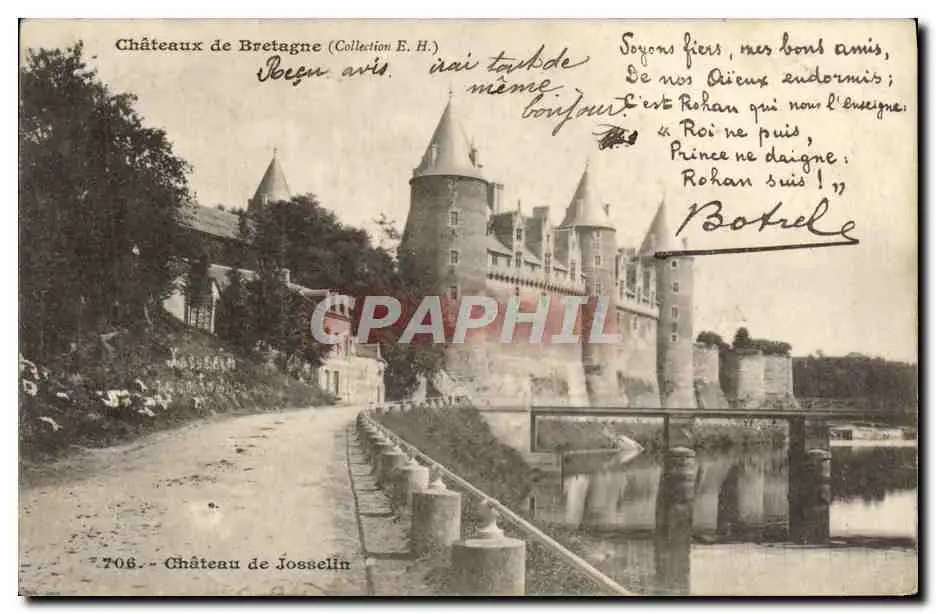 Châteaux de Bretagne (Collection E. H.)
Reçu avis. irai tout de
même
bonjour
Soyons fiers, mes bons amis,
De nos Aïeux endormis;
C'est Rohan qui nous l'enseigne:
« Roi ne puis,
Prince ne daigne:
Rohan suis! „
Botrel
CPAPHIL
706. - Château de Josselin